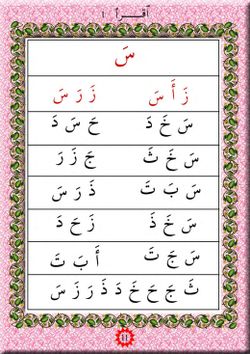 اقرأ ١
سَ
زَ أَ سَ زَ رَ سَ
سَ خَ دَ حَ سَ دَ
سَ خَ ثَ جَ زَ رَ
سَ بَ تَ ذَ رَ سَ
سَ خَ ذَ زَ حَ دَ
سَ جَ تَ أَ بَ تَ
ثَ جَ حَ خَ دَ ذَ رَ زَ سَ